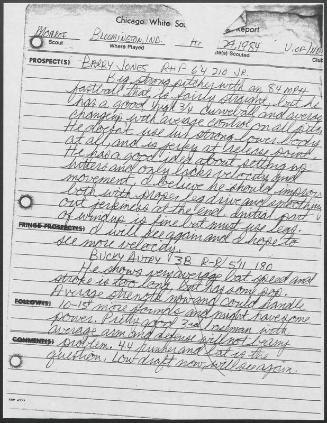 Chicago White So
Report
Bloomington, IND.
1984
U. of
Scout
Where Played
Club
PROSPECT(S) Barry Jones RHP 6'4 210 JR.
Big strong pitcher with an 84 MPH
fastball that is fairly straight, but he
has a good hard 3/4 curveball and average
change up with average control on all pitches
He doesn't use his strong lower body
at all, and is jerky at release point.
He has a good idea about setting up
hitters and only lacks velocity and
movement. I believe he should improve
both with proper leg drive and smoothing
out jerkiness of the end. Initial part
of windup is fine but must use legs.
FRINGE PROSPECT(S) I will see again and I hope to
see more velocity.
Bucky Autry 3B R-R 5'11 180
He shows very average bat speed and
stroke is too long but has some pop.
Average strength now and could handle
FOLLOW(S) 10-15 more pounds and might have some
power. Pretty good 3rd baseman with
average arm and defense will not be any
COMMENT(S) problem. 4.4 runner and bat is the
question. Low draft now, will see again.